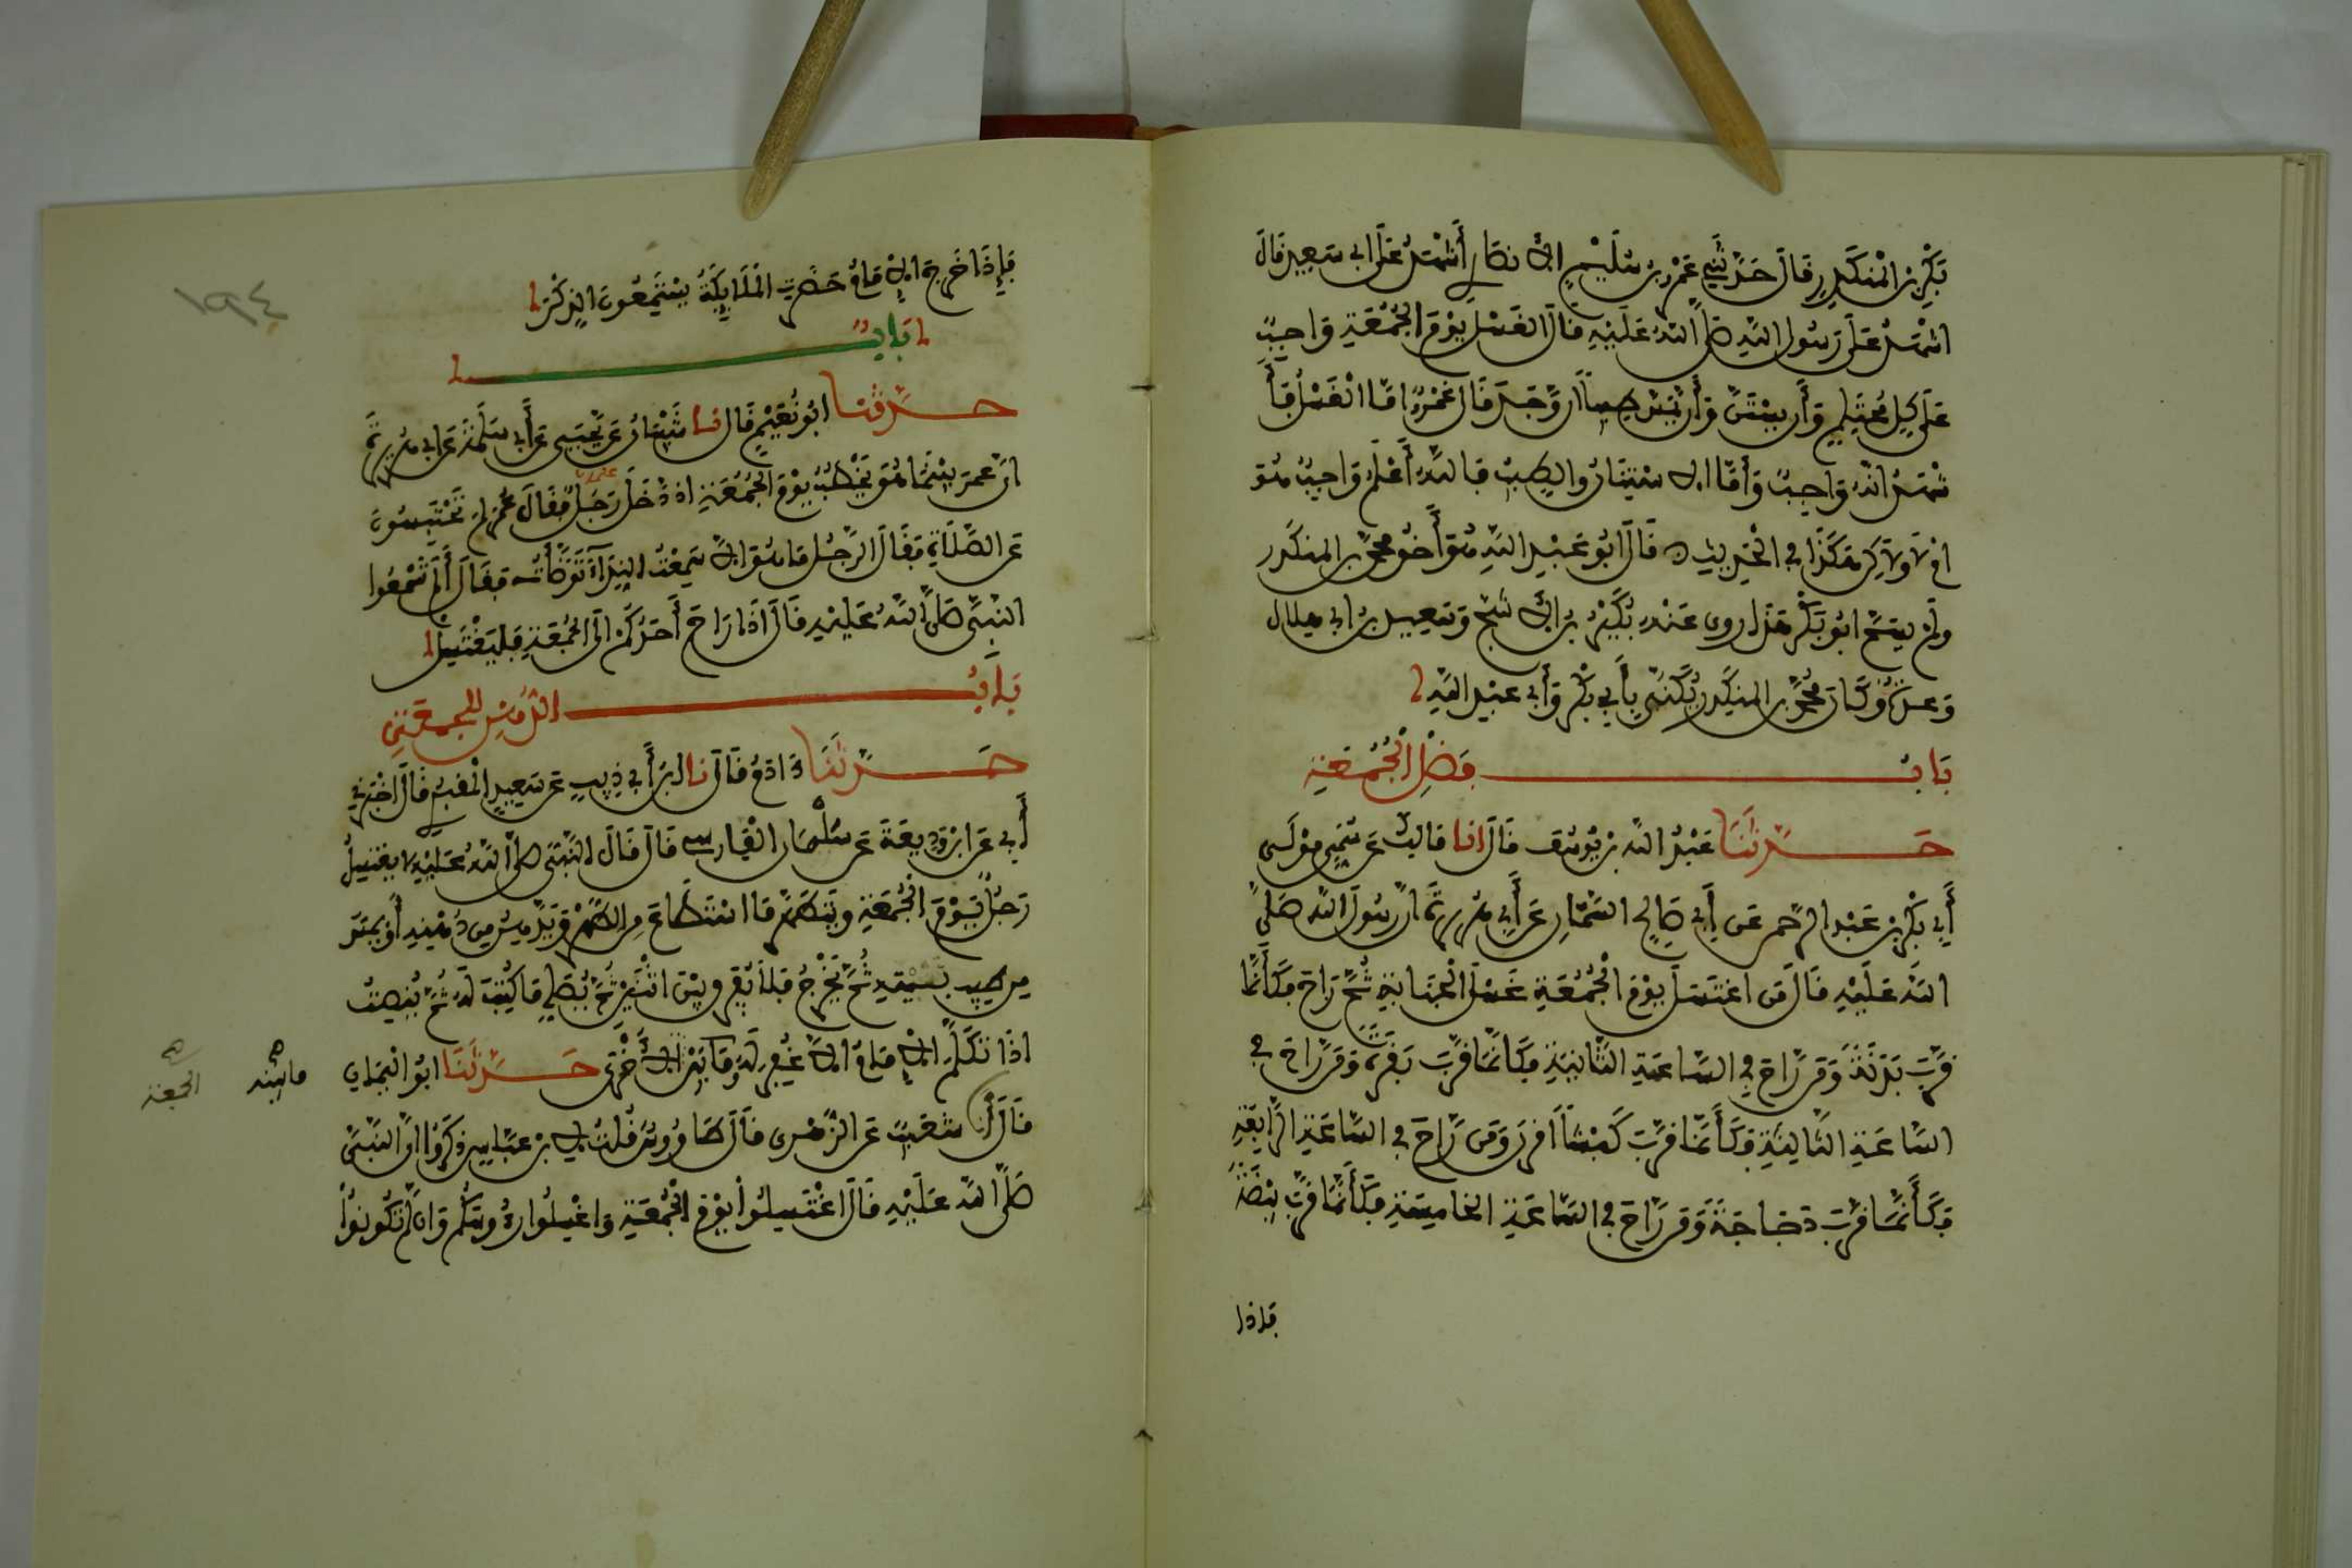 بَكْرِ بْنِ الْمُنْكَدِرِ قَالَ حَدَّثَنِي عَمْرُو بْنُ سُلَيْمٍ الانصاري أَشْهَدُ عَلَى ابي سَعِيدٍ قَالَ
اشْهَدُ عَلَى رَسُولِ اللَّهِ صَلَّى اللَّهُ عَلَيْهِ قَالَ الغُسْلُ يَوْمَ الْجُمُعَةِ وَاجِبٌ
عَلَى كُلِّ مُحْتَلِمٍ وَأَن يَسْتَنَّ وَأَن يَمَسَّ طِيباً ان وَّجَدَ قَالَ عَمْرٌو امَّا الْغُسْلُ فَأَ
شْهَدُ انَّهُ وَاجِبٌ وَأَمَّا الاِسْتِنَانُ وَالطِّيبُ فَاللَّهُ أَعْلَمُ وَاجِبٌ هُوَ
امْ لَا وَلَكِن هَكَذَا فِي الْحَدِيثِ ه قَالَ ابُو عَبْدِ اللَّهِ هُوَ أَخُو مُحَمَّدِ بن المنكَدِر
وَلَمْ يُسَمَّ ابُو بَكْرٍ هَذَا روى عَنْهُ بُكَيْرُ بْنُ الاشَجّ وَسَعِيدُ بنُ ابي هِلال
وَعِدَّةٌ وَكَانَ مُحَمَّدُ بن المنكَدِر يُكْنَى بِأَبِي بَكْرٍ وَأَبِي عَبْدِ اللَّهِ
بَابُ فَضْلِ الْجُمُعَةِ
حَدَّثَنَا عَبْدُ اللَّه بْنُ يُوسُفَ قَالَ انا مَالِكٌ عَن سُمَيٍّ مَوْلَى
أَبِي بَكْرِ بْنِ عَبْدِ الرَّحْمن عَن أَبِي صَالِحٍ السَّمَّانِ عَن أَبِي هُرَيْرَةَ انَّ رَسُولَ اللَّه صَلَّى
اللَّهُ عَلَيْهِ قَالَ مَن اغْتَسَلَ يَوْمَ الْجُمُعَةِ غُسْلَ الْجَنَابَةِ ثُمَّ رَاحَ فَكَأَنَّمَا
قَرَّبَ بَدَنَةً وَمَن رَّاحَ فِي السَّاعَةِ الثَّانِيَةِ فَكَأَنَّمَا قَرَّبَ بَقَرَةً وَمَن رَّاحَ فِي
السَّاعَةِ الثَّالِثَةِ فَكَأَنَّمَا قَرَّبَ كَبْشاً اقْرَنَ وَمَن رَّاحَ فِي السَّاعَةِ الرَّابِعَةِ
فَكَأَنَّمَا قَرَّبَ دَجَاجَةً وَمَن رَّاحَ فِي السَّاعَةِ الخَامِسَةِ فَكَأَنَّمَا قَرَّبَ بَيْضَةً
فإذا
١٩٤
فَإِذَا خَرَجَ الاِمَامُ حَضَرَتِ الْمَلَائِكَةُ يَسْتَمِعُونَ الذِّكْرَ
بَابٌ
حَدَّثَنَا ابُو نُعَيْمٍ قَالَ نا شَيْبَانُ عَن يَّحْيَى عَن أَبِي سَلَمَةَ عَن ابي هُرَيْرَةَ
انَّ عُمَرَ بَيْنَمَا هُوَ يَخْطُبُ يَوْمَ الْجُمُعَةِ اذْ دَخَلَ رَجُلٌ فَقَالَ عُمَرُ لِمَ تَحْتَبِسُونَ
عَن الصَّلَاةِ فَقَالَ الرَّجُلُ مَا هُوَ الاَّ سَمِعْتُ النِّدَاءَ تَوَضَّأْتُ فَقَالَ أَلَمْ تَسْمَعُوا
النَّبِيَّ صَلَّى اللَّهُ عَلَيْهِ قَالَ اذَا رَاحَ أَحَدُكُمْ الَى الْجُمُعَةِ فَلْيَغْتَسِلْ
بَابُ الدُّهْنِ لِلْجُمُعَةِ
حَدَّثَنَا ءَادَمُ قَالَ نا ابنُ أَبِي ذِيبٍ عَن سَعِيدٍ الْمَقْبُرِي قَالَ اخْبَرَنِي
أَبِي عَن ابْنِ وَدِيعَةَ عَن سَلْمَانَ الْفَارِسِي قَالَ قَالَ النَّبِيُّ صَلَّى اللَّهُ عَلَيْهِ لا يَغْتَسِلُ
رَجُلٌ يَّوْمَ الْجُمُعَةِ وَيَتَطَهَّرُ مَا اسْتَطَاعَ مِن الطُّهْرِ وَيَدَّهِنُ مِن دُهْنِهِ أَوْ يَمَسُّ
مِن طِيبِ بَيْتِهِ ثُمَّ يَخْرُجُ فَلاَ يُفَرِّقُ بَيْنَ اثْنَيْنِ ثُمَّ يُصَلِّي مَا كُتِبَ لَهُ ثُمَّ يُنْصِتُ
اذَا تَكَلَّمَ الاِمَامُ الاَّ غُفِرَ لَهُ مَا بَيْنَ الاُخْرَى حَدَّثَنَا ابُو الْيَمَانِ
مابينه
الجمعة
قَالَ أنا شُعَيْبٌ عَن الزُّهْرِي قَالَ طَاوُوسٌ قُلْتُ لِابْنِ عَبَّاسٍ ذَكَرُوا انَّ النَّبِيَّ
صَلَّى اللَّه عَلَيْهِ قَالَ اغْتَسِلُوا يَوْمَ الْجُمُعَةِ وَاغْسِلُوا رُءُوسَكُمْ وَان لَّمْ تَكُونُوا